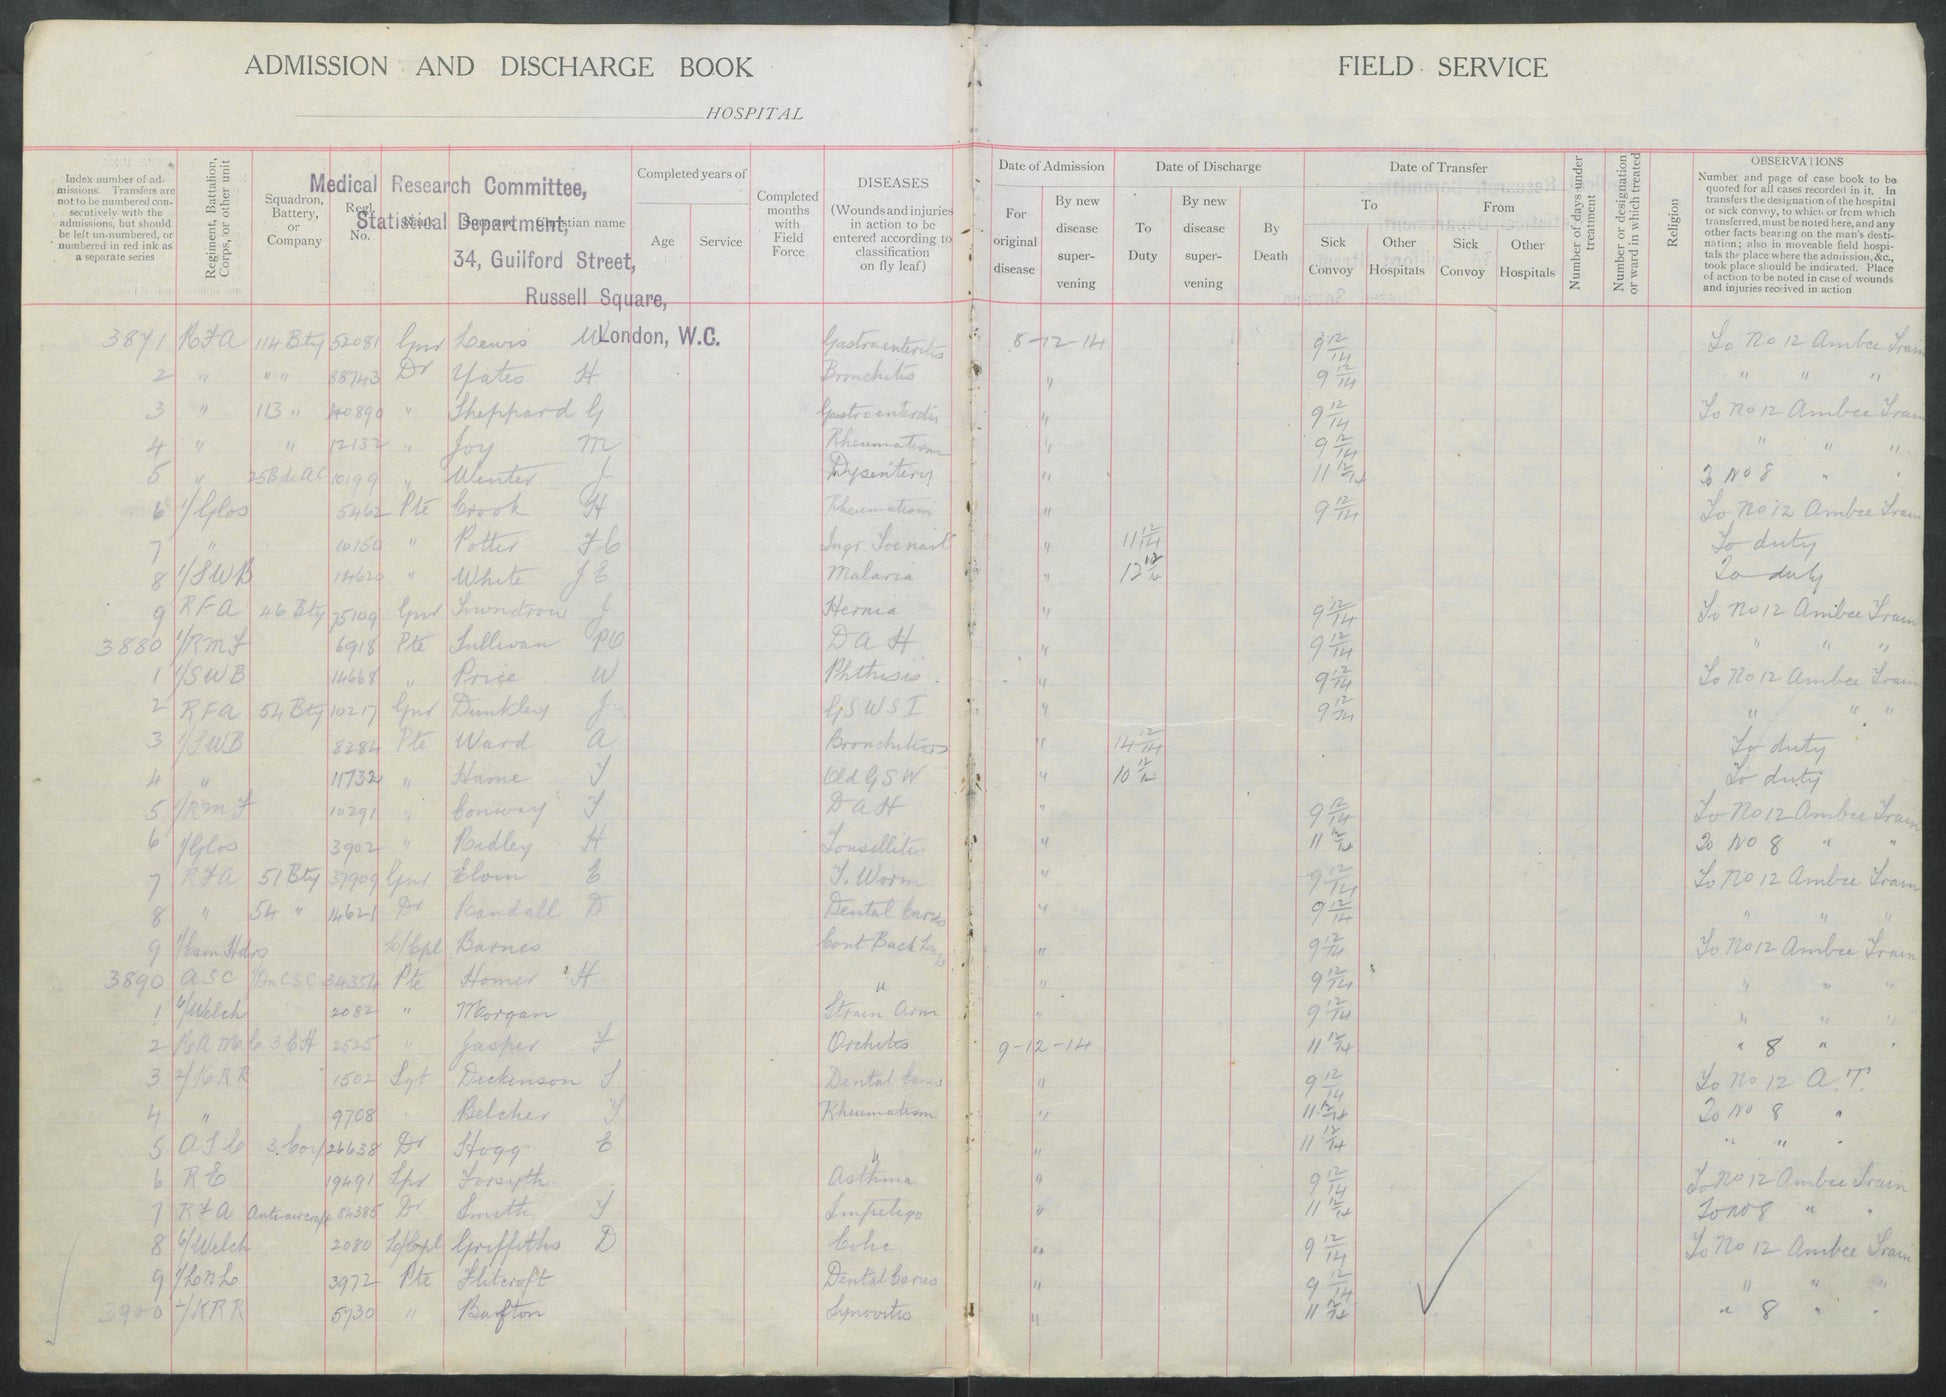 ADMISSION AND DISCHARGE BOOK
HOSPITAL
FIELD SERVICE
Index number of admissions. Transfers are not to be numbered consecutively with the admissions, but should be left un-numbered, or numbered in red ink as a separate series
Regiment, Battalion, Corps, or other unit
Squadron, Battery, or Company
Regl. No.
Rank
Surname
Christian name
Medical Research Committee,
Statistical Department,
34, Guilford Street,
Russell Square,
London, W.C.
Completed years of
Age
Service
Completed months with Field Force
DISEASES
(Wounds and injuries in action to be entered according to classification on fly leaf)
Date of Admission
For original disease
By new disease supervening
Date of Discharge
To Duty
By new disease supervening
By Death
Date of Transfer
To
From
Sick Convoy
Other Hospitals
Sick Convoy
Other Hospitals
Number of days under treatment
Number or designation or ward in which treated
Religion
OBSERVATIONS
Number and page of case book to be quoted for all cases recorded in it. In transfers the designation of the hospital or sick convoy, to which or from which transferred, must be noted here, and any other facts bearing on the man's destination; also in moveable field hospitals the place where the admission, &c., took place should be indicated. Place of action to be noted in case of wounds and injuries received in action
3871 RFA 114 Bty 52081 Gnr Lewis W Gastroenteritis 8-12-14 9 12/14 To No 12 Ambce Train
2 " " " 88743 Dr Yates H Bronchitis " 9 12/14 " " "
3 " 113 " 40890 " Sheppard G Gastroenteritis " 9 12/14 To No 12 Ambce Train
4 " " 12132 " Joy M Rheumatism " 9 12/14 " " "
5 " 25 Bde AC 10199 " Winter J Dysentery " 11 12/14 To No 8 " "
6 1/Glos 5462 Pte Crook H Rheumatism " 9 12/14 To No 12 Ambce Train
7 " 10150 " Potter FC Ingr. Toenail " 11 12/14 To duty
8 1/SWB 14620 " White JE Malaria " 12 12/14 To duty
9 RFA 46 Bty 75109 Gnr Towndrow J Hernia " 9 12/14 To No 12 Ambce Train
3880 1/RMF 6918 Pte Sullivan PO DAH " 9 12/14 " " "
1 1/SWB 14668 " Price W Phthisis. " 9 12/14 To No 12 Ambce Train
2 RFA 54 Bty 10217 Gnr Dunkley J GSWSI " 9 12/14 " " "
3 1/SWB 8284 Pte Ward A Bronchitis " 14 12/14 To duty
4 " 11732 " Hume T Old GSW " 10 12/12 To duty
5 1/RMF 10291 " Conway T DAH " 9 12/14 To No 12 Ambce Train
6 1/Glos 3902 " Ridley H Tonsillitis " 11 12/14 To No 8 " "
7 RFA 51 Bty 37909 Gnr Elvin E T. Worm " 9 12/14 To No 12 Ambce Train
8 " 54 " 14621 Dr Randall D Dental Caries " 9 12/14 " " "
9 1/Cam Hdrs L/Cpl Barnes Cont Back " 9 12/14 To No 12 Ambce Train
3890 ASC CSC 34354 Pte Homer H " " 9 12/14 " " "
1 6/Welch 2082 " Morgan Strain Arm " 9 12/14 " " "
2 RAMC 3 CH 2525 " Jasper F Orchitis 9-12-14 11 12/14 " 8 " "
3 2/KRR 1502 Sgt Dickinson S Dental Caries " 9 12/14 To No 12 A.T.
4 " 9708 Belcher T Rheumatism " 11 12/14 To No 8 "
5 ASC 26638 Dr Hogg E " " 11 12/14 " " "
6 RE 19491 Spr Forsyth Asthma " 9 12/14 To No 12 Ambce Train
7 RFA Antiaircraft 84385 Dr Smith T Impetigo " 11 12/14 To No 8 " "
8 6/Welch 2080 L/Cpl Griffiths D Colic " 9 12/14 To No 12 Ambce Train
9 1/LNL 3972 Pte Flitcroft Dental Caries " 9 12/14 " " "
3900 2/KRR 5730 " Barton Synovitis " 11 12/14 " 8 " "